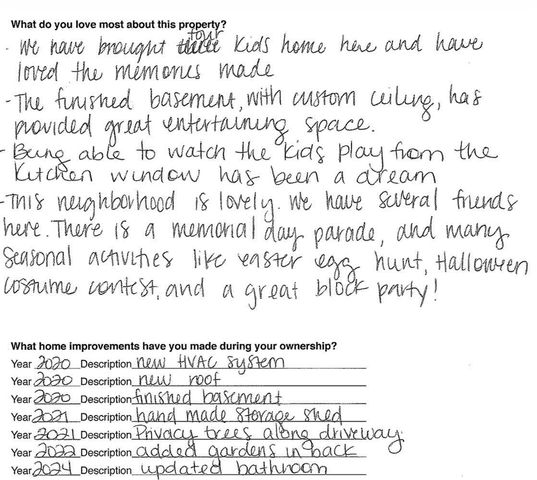 What do you love most about this property?
four
- We have brought three kids home here and have
loved the memories made
- The finished basement, with custom ceiling, has
provided great entertaining space.
- Being able to watch the kids play from the
kitchen window has been a dream
- This neighborhood is lovely. We have several friends
here. There is a memorial day parade, and many
seasonal activities like easter egg hunt, Halloween
costume contest, and a great block party!
What home improvements have you made during your ownership?
Year 2020 Description new HVAC system
Year 2020 Description new roof
Year 2020 Description finished basement
Year 2021 Description hand made storage shed
Year 2021 Description Privacy trees along driveway
Year 2022 Description added gardens in back
Year 2024 Description updated bathroom